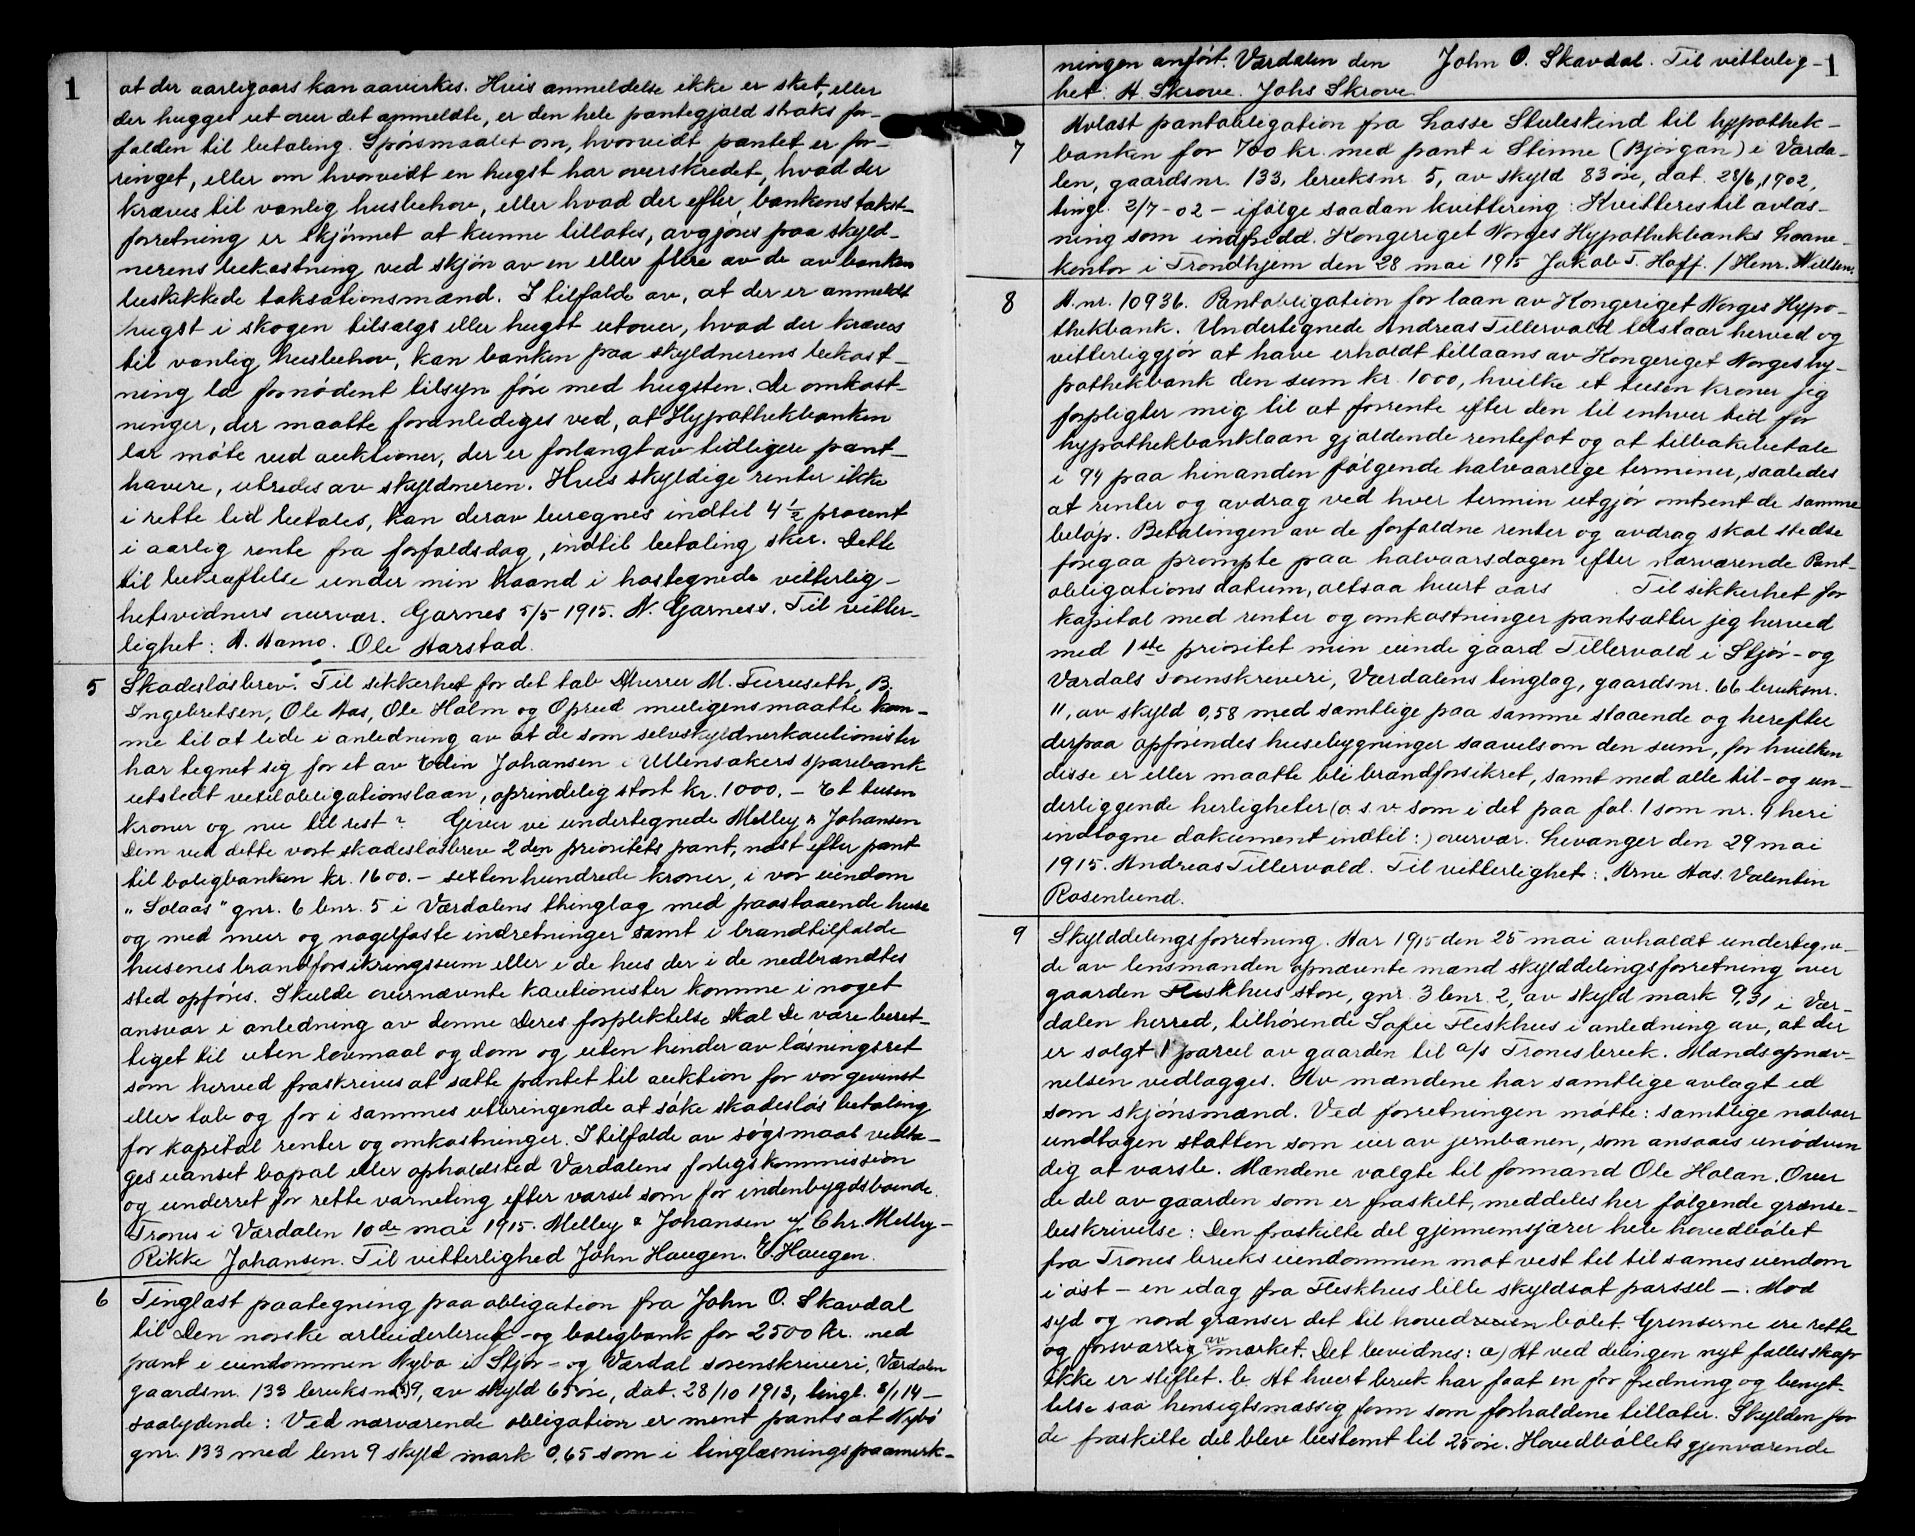 1
at der aarligaars kan aavirkes. Hvis anmeldelse ikke er sket, eller
der hugges ut over det anmeldte, er den hele pantegjæld straks for-
falden til betaling. Spørsmaalet om, hvorvidt pantet er for-
ringet, eller om hvorvidt en hugst har overskredet, hvad der
kræves til vanlig husbehov, eller hvad der efter bankens takst-
forretning er skjønnet at kunne tillates, avgjøres paa skyld-
nerens bekostning ved skjøn av en eller flere av de av banken
beskikkede taksationsmænd. I tilfælde av, at der er anmeldt
hugst i skogen tilsalgs eller hugst utover, hvad der kræves
til vanlig husbehov, kan banken paa skyldnerens bekost-
ning la fornødent tilsyn føre med hugsten. De omkost-
ninger, der maatte foranlediges ved, at Hypothekbanken
lar møte ved auktioner, der er forlangt av tidligere pant-
havere, utredes av skyldneren. Hvis skyldige renter ikke
i rette tid betales, kan derav beregnes indtil 4 1/2 procent
i aarlig rente fra forfaldsdag, indtil betaling sker. Dette
til bekræftelse under min haand i hostegnede vitterlig-
hetsvidners overvær. Garnes 5/5 1915. N. Garness. Til vitter-
lighet: A. Aamo. Ole Aarstad.
5 Skadesløsbrev. Til sikkerhet for det tab Herrer M. Furuseth, B.
Ingebretsen, Ole Aas, Ole Holm og Oprud muligens maatte kom-
me til at lide i anledning av at de som selvskyldnerkautionister
har tegnet sig for et av Edin Johansen i Ullensakers sparebank
utstedt vexelobligationslaan, oprindelig stort kr. 1000.- Et tusen
kroner og nu til rest ? Giver vi undertegnede Melby & Johansen
Dem ved dette vort skadesløsbrev 2den prioritets pant, næst efter pant
til boligbanken kr. 1600.- sexten hundrede kroner, i vor eiendom
"Solaas" gnr. 6 bnr. 5 i Værdalens thinglag med paastaaende huse
og med mur og nagelfaste indretninger samt i brandtilfælde
husenes brandforsikringssum eller i de hus der i de nedbrændtes
sted opføres. Skulde overnævnte kautionister komme i noget
ansvar i anledning av denne Deres forpliktelse skal De være beret-
tiget til uten lovmaal og dom og uten hinder av løsningsret
som herved fraskrives at sætte pantet til auktion for vor gevinst
eller tab og for i sammes utbringende at søke skadesløs betaling
for kapital renter og omkostninger. I tilfælde av søgsmaal vedta-
ges uanset bopæl eller opholdsted Værdalens forligskommission
og underret for rette værneting efter varsel som for indenbygdsboende.
Trones i Værdalen 10de mai 1915. Melby & Johansen v/ Chr. Melby-
Rikke Johansen. Til vitterlighed John Haugen. E. Haugen.
6 Tinglæst paategning paa obligation fra John O. Skavdal
til Den norske arbeiderbruk- og boligbank for 2500 kr. med
pant i eiendommen Nybo i Stjør- og Værdal sorenskriveri, Værdalen
gaardsnr. 133 bruksnr (?) 9, av skyld 65 øre, dat. 28/10 1913, tingl. 8/1 14 -
saalydende: Ved nærværende obligation er ment pantsat Nybø
gnr. 133 med bnr 9 skyld mark 0,65 som i tinglæsningspaamerk-
1
ningen anført. Værdalen den John O. Skavdal. Til vitterlig-
het: A. Skrove. Johs Skrove.
7 Avlæst pantobligation fra Lasse Stuleskind til hypothek-
banken for 700 kr. med pant i Stinne (Bjørgan) i Værda-
len, gaardsnr. 133, bruksnr 5, av skyld 83 øre, dat. 28/6, 1902,
tingl. 2/7-02 - ifølge saadan kvittering: Kvitteres til avlæs-
ning som indfridd. Kongeriget Norges Hypothekbanks Laane-
kontor i Trondhjem den 28 mai 1915 Jakob T. Hoff. / Henr. Nielsen.
8 A. nr. 10936. Pantobligation for laan av Kongeriget Norges Hypo-
thekbank. Undertegnede Andreas Tillervald tilstaar herved og
vitterliggjør at have erholdt tillaans av Kongeriget Norges hy-
pothekbank den sum kr. 1000, hvilke et tusen kroner jeg
forpligter mig til at forrente efter den til enhver tid for
hypothekbanklaan gjældende rentefot og at tilbakebetale
i 94 paa hinanden følgende halvaarlige terminer, saaledes
at renter og avdrag ved hver termin utgjør omtrent de samme
beløp. Betalingen av de forfaldne renter og avdrag skal stedse
foregaa prompte paa halvaarsdagen efter nærværende Pant-
obligations datum, altsaa hvert aars . Til sikkerhet for
kapital med renter og omkostninger pantsætter jeg herved
med 1ste prioritet min eiende gaard Tillervald i Stjør- og
Værdals sorenskriveri, Værdalens tinglag, gaardsnr. 66 bruksnr.
11, av skyld 0,58 med samtlige paa samme staaende og herefter
derpaa opførendes husebygninger saavelsom den sum, for hvilken
disse er eller maatte bli brandforsikret, samt med alle til- og un-
derliggende herligheter (o. s. v som i det paa fol. 1 som nr. 4 heri
indtagne dokument indtil:) overvær. Levanger den 29 mai
1915. Andreas Tillervald. Til vitterlighet: Arne Aas. Valentin
Rosenlund.
9 Skylddelingsforretning. Aar 1915 den 25 mai avholdt undertegne-
de av lensmanden opnævnte mænd skylddelingsforretning over
gaarden Fleskhus store, gnr. 3 bnr. 2, av skyld mark 9,31 i Vær-
dalen herred, tilhørende Sofie Fleskhus i anledning av, at der
er solgt 1 parcel av gaarden til a/s Tronesbruk. Mændsopnæv-
nelsen vedlægges. Av mændene har samtlige avlagt ed
som skjønsmænd. Ved forretningen møtte: samtlige naboer
undtagen statten som eier av jernbanen, som ansaaes unødven
dig at varsle. Mændene valgte til formand Ole Holan. Over
de del av gaarden som er fraskelt, meddeles her følgende grænse-
beskrivelse: Den fraskilte del gjennemsjærer hele hovedbølet
fra Trones bruks eiendommen mot vest til til sames eiendom
i øst - en idag fra Fleskhus lille skyldsat parssel -. Mod
syd og nord grænser det til hovedbølet. Grenserne ere rette
og forsvarlig avmærket. Det bevidnes: a) At ved delingen nyt fælleskap
ikke er stiftet. b. At hvert bruk har faat en for fredning og benyt-
telse saa hensigtsmæssig form som forholdene tillater. Skylden for
de fraskilte del blev bestemt til 25 øre. Hovedbøllets gjenværende